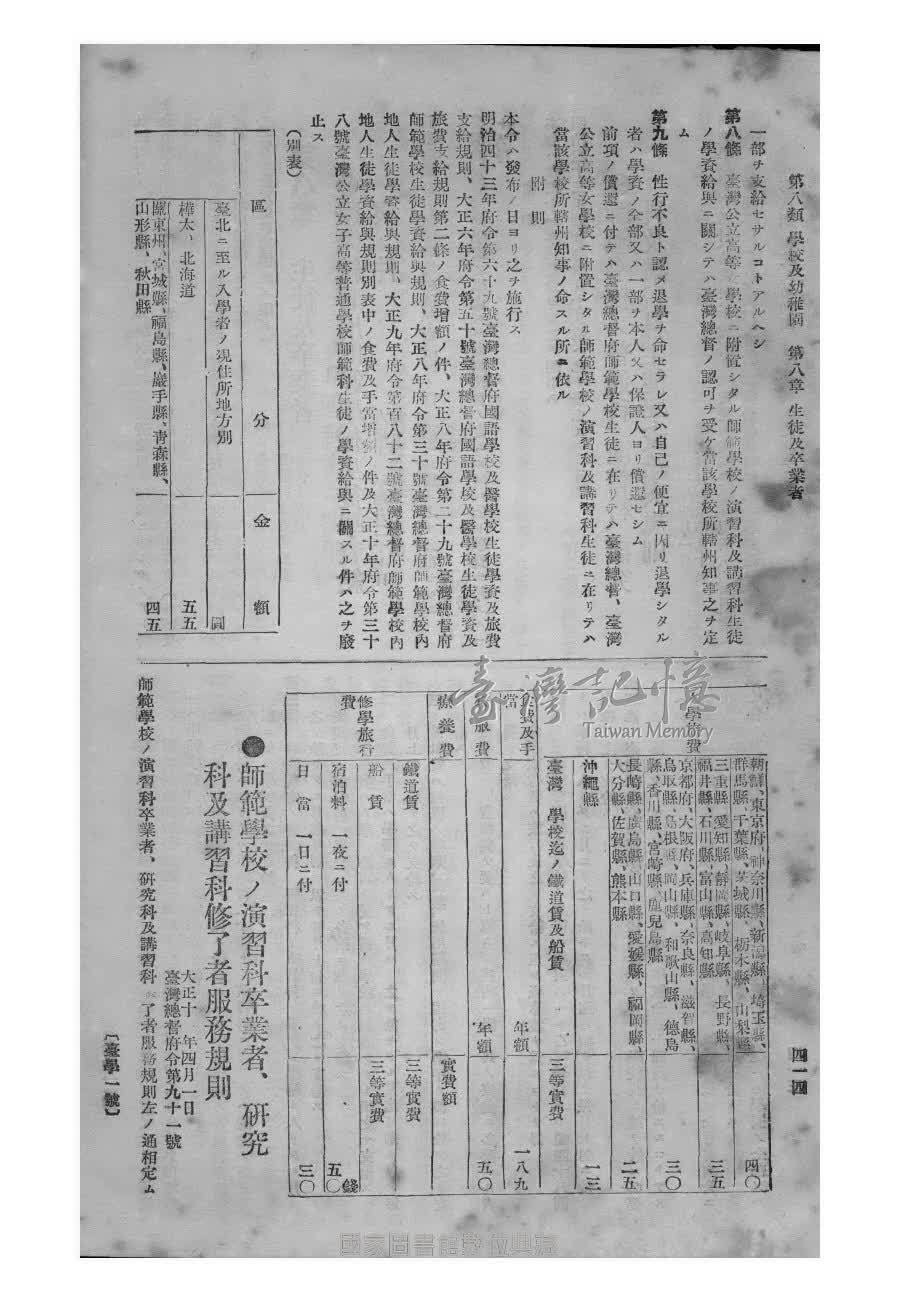 第八類 學校及幼稚園 第八章 生徒及卒業者
四一四
一部ヲ支給セサルコトアルヘシ
第八條 臺灣公立高等女學校ニ附置シタル師範學校ノ演習科及講習科生徒
ノ學資給與ニ關シテハ臺灣總督ノ認可ヲ受ケ當該學校所轄州知事之ヲ定
ム
第九條 性行不良ト認メ退學ヲ命セラレ又ハ自己ノ便宜ニ因リ退學シタル
者ハ學資ノ全部又ハ一部ヲ本人又ハ保證人ヨリ償還セシム
前項ノ償還ニ付テハ臺灣總督府師範學校生徒ニ在リテハ臺灣總督、臺灣
公立高等女學校ニ附置シタル師範學校ノ演習科及講習科生徒ニ在リテハ
當該學校所轄州知事ノ命スル所ニ依ル
附則
本令ハ發布ノ日ヨリ之ヲ施行ス
明治四十三年府令第六十九號臺灣總督府國語學校及醫學校生徒學資及旅費
支給規則、大正六年府令第五十號臺灣總督府國語學校及醫學校生徒學資及
旅費支給規則第二條ノ食費增額ノ件、大正八年府令第二十九號臺灣總督府
師範學校生徒學資給與規則、大正八年府令第三十號臺灣總督府師範學校內
地人生徒學資給與規則、大正九年府令第百八十二號臺灣總督府師範學校內
地人生徒學資給與規則別表中ノ食費及手當增額ノ件及大正十年府令第三十
八號臺灣公立女子高等普通學校師範科生徒ノ學資給與ニ關スル件ハ之ヲ廢
止ス
(別表)
區 分 金 額
臺北ニ至ル入學者ノ現住所地方別 圓
樺太、北海道 五五
關東州、宮城縣、福島縣、巖手縣、靑森縣、
山形縣、秋田縣 四五
學旅費
朝鮮、東京府、神奈川縣、新潟縣、埼玉縣、
群馬縣、千葉縣、茨城縣、栃木縣、山梨縣 四〇
三重縣、愛知縣、靜岡縣、岐阜縣、長野縣、
福井縣、石川縣、富山縣、高知縣 三五
京都府、大阪府、兵庫縣、奈良縣、滋賀縣、
鳥取縣、島根縣、岡山縣、和歌山縣、德島
縣、香川縣、宮崎縣、鹿兒島縣 三〇
長崎縣、廣島縣、山口縣、愛媛縣、福岡縣、
大分縣、佐賀縣、熊本縣 二五
沖繩縣 一三
臺灣 學校迄ノ鐵道賃及船賃 三等實費
食費及手當 年額 一八九
服費 年額 五〇
療養費 實費額
修學旅行費
鐵道賃 三等實費
船賃 三等實費
宿泊料 一夜ニ付 五〇錢
日當 一日ニ付 三〇
●師範學校ノ演習科卒業者、硏究
科及講習科修了者服務規則
大正十 年四月一日
臺灣總督府令第九十一號
師範學校ノ演習科卒業者、硏究科及講習科 了者服務規則左ノ通相定ム
〔臺學一號〕
臺灣記憶
Taiwan Memory
國家圖書館數位典藏